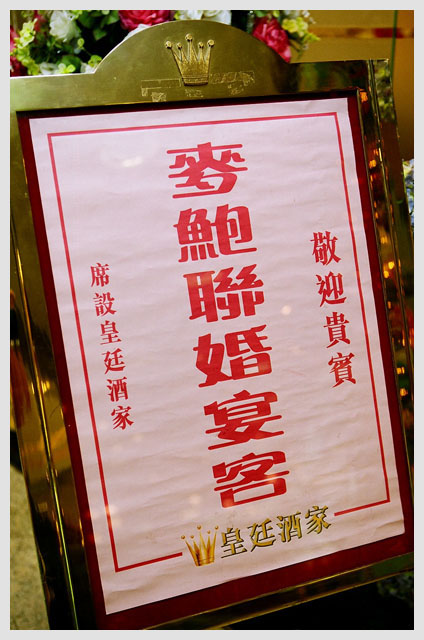 敬迎貴賓
麥鮑聯婚宴客
席設皇廷酒家
皇廷酒家